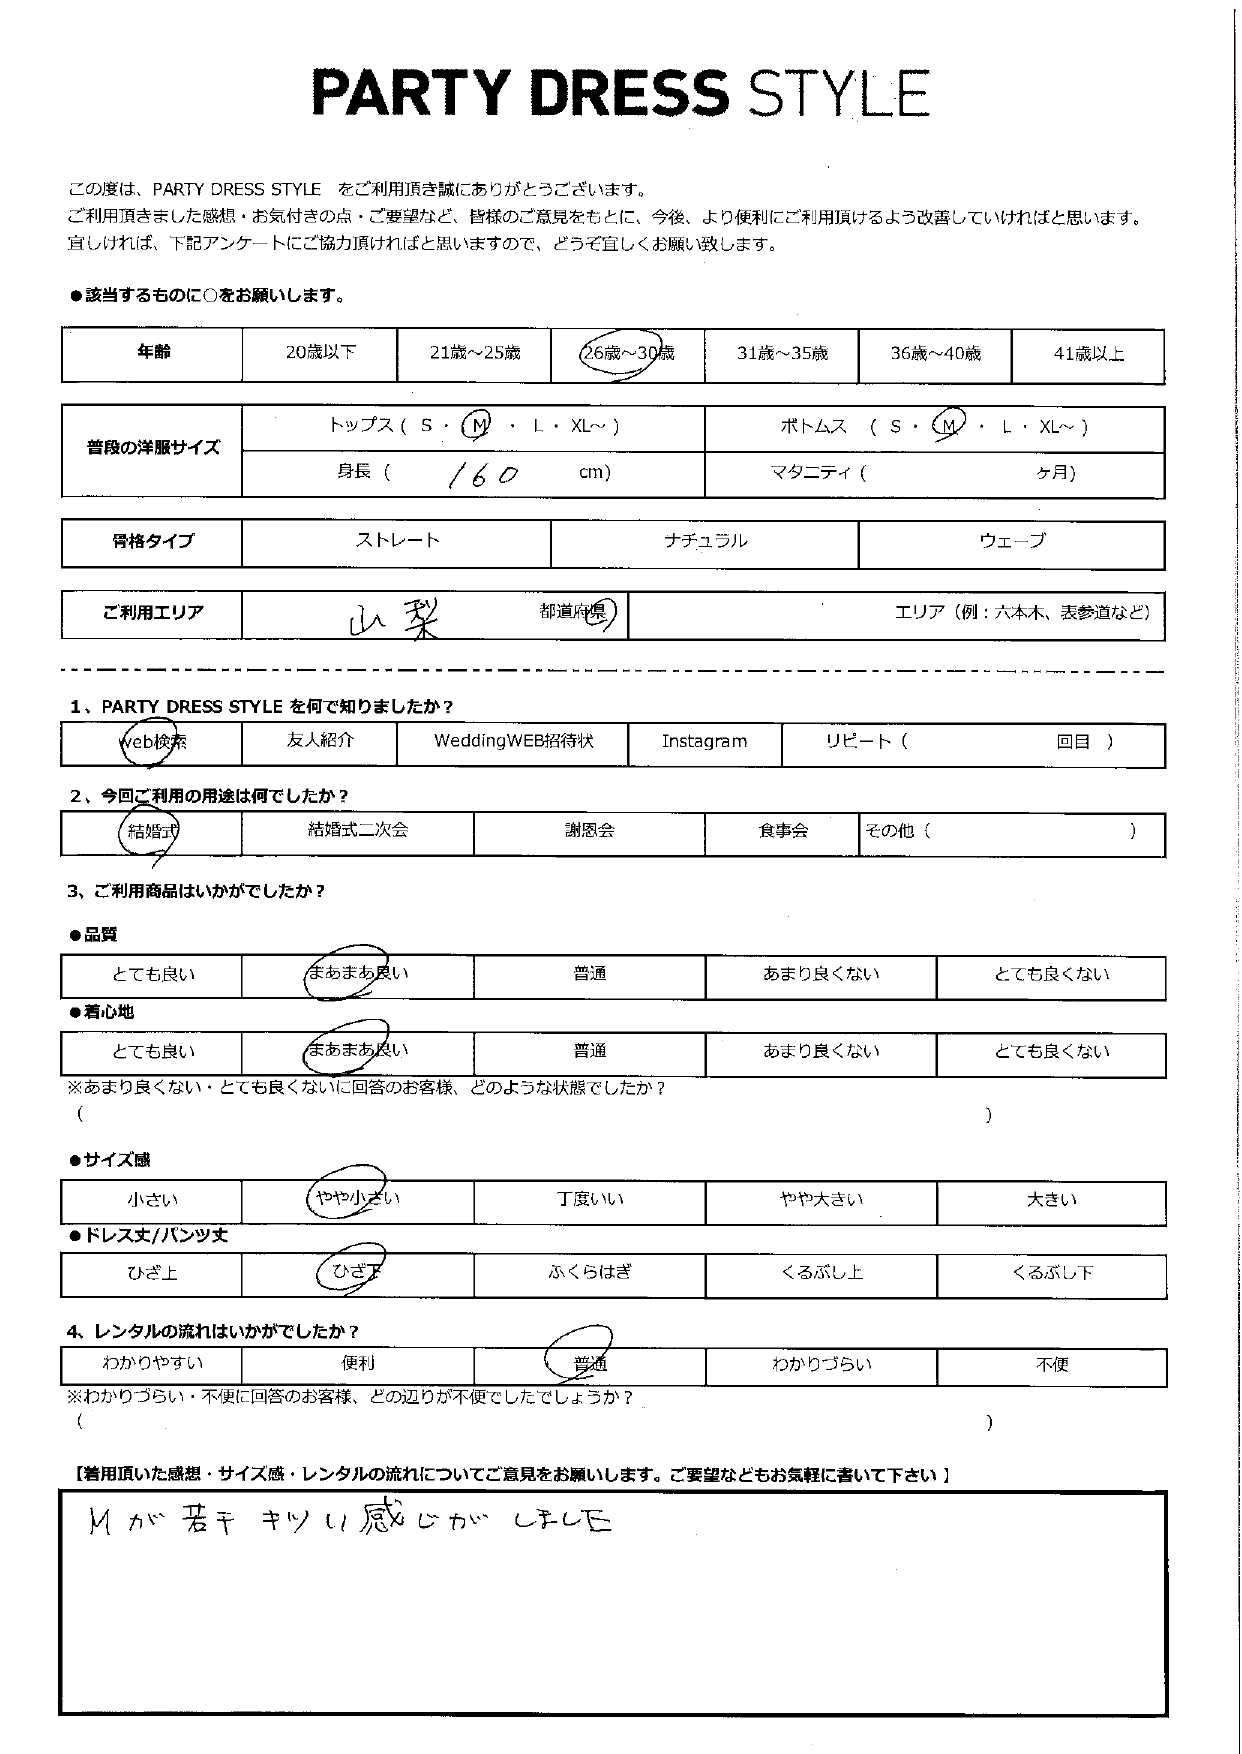 PARTY DRESS STYLE
この度は、PARTY DRESS STYLE をご利用頂き誠にありがとうございます。
ご利用頂きました感想・お気付きの点・ご要望など、皆様のご意見をもとに、今後、より便利にご利用頂けるよう改善していければと思います。
宜しければ、下記アンケートにご協力頂ければと思いますので、どうぞ宜しくお願い致します。
●該当するものに○をお願いします。
年齢 20歳以下 21歳～25歳 26歳～30歳 31歳～35歳 36歳～40歳 41歳以上
普段の洋服サイズ トップス ( S ・ M ・ L ・ XL～ ) ボトムス ( S ・ M ・ L ・ XL～ )
身長 ( 160 cm) マタニティ ( ヶ月)
骨格タイプ ストレート ナチュラル ウェーブ
ご利用エリア 山梨 都道府県 エリア（例：六本木、表参道など）
1、PARTY DRESS STYLE を何で知りましたか？
web検索 友人紹介 WeddingWEB招待状 Instagram リピート ( 回目 )
2、今回ご利用の用途は何でしたか？
結婚式 結婚式二次会 謝恩会 食事会 その他 ( )
3、ご利用商品はいかがでしたか？
●品質
とても良い まあまあ良い 普通 あまり良くない とても良くない
●着心地
とても良い まあまあ良い 普通 あまり良くない とても良くない
※あまり良くない・とても良くないに回答のお客様、どのような状態でしたか？
( )
●サイズ感
小さい やや小さい 丁度いい やや大きい 大きい
●ドレス丈/パンツ丈
ひざ上 ひざ下 ふくらはぎ くるぶし上 くるぶし下
4、レンタルの流れはいかがでしたか？
わかりやすい 便利 普通 わかりづらい 不便
※わかりづらい・不便に回答のお客様、どの辺りが不便でしたでしょうか？
( )
【着用頂いた感想・サイズ感・レンタルの流れについてご意見をお願いします。ご要望などもお気軽に書いて下さい】
Mが若干キツい感じがしました